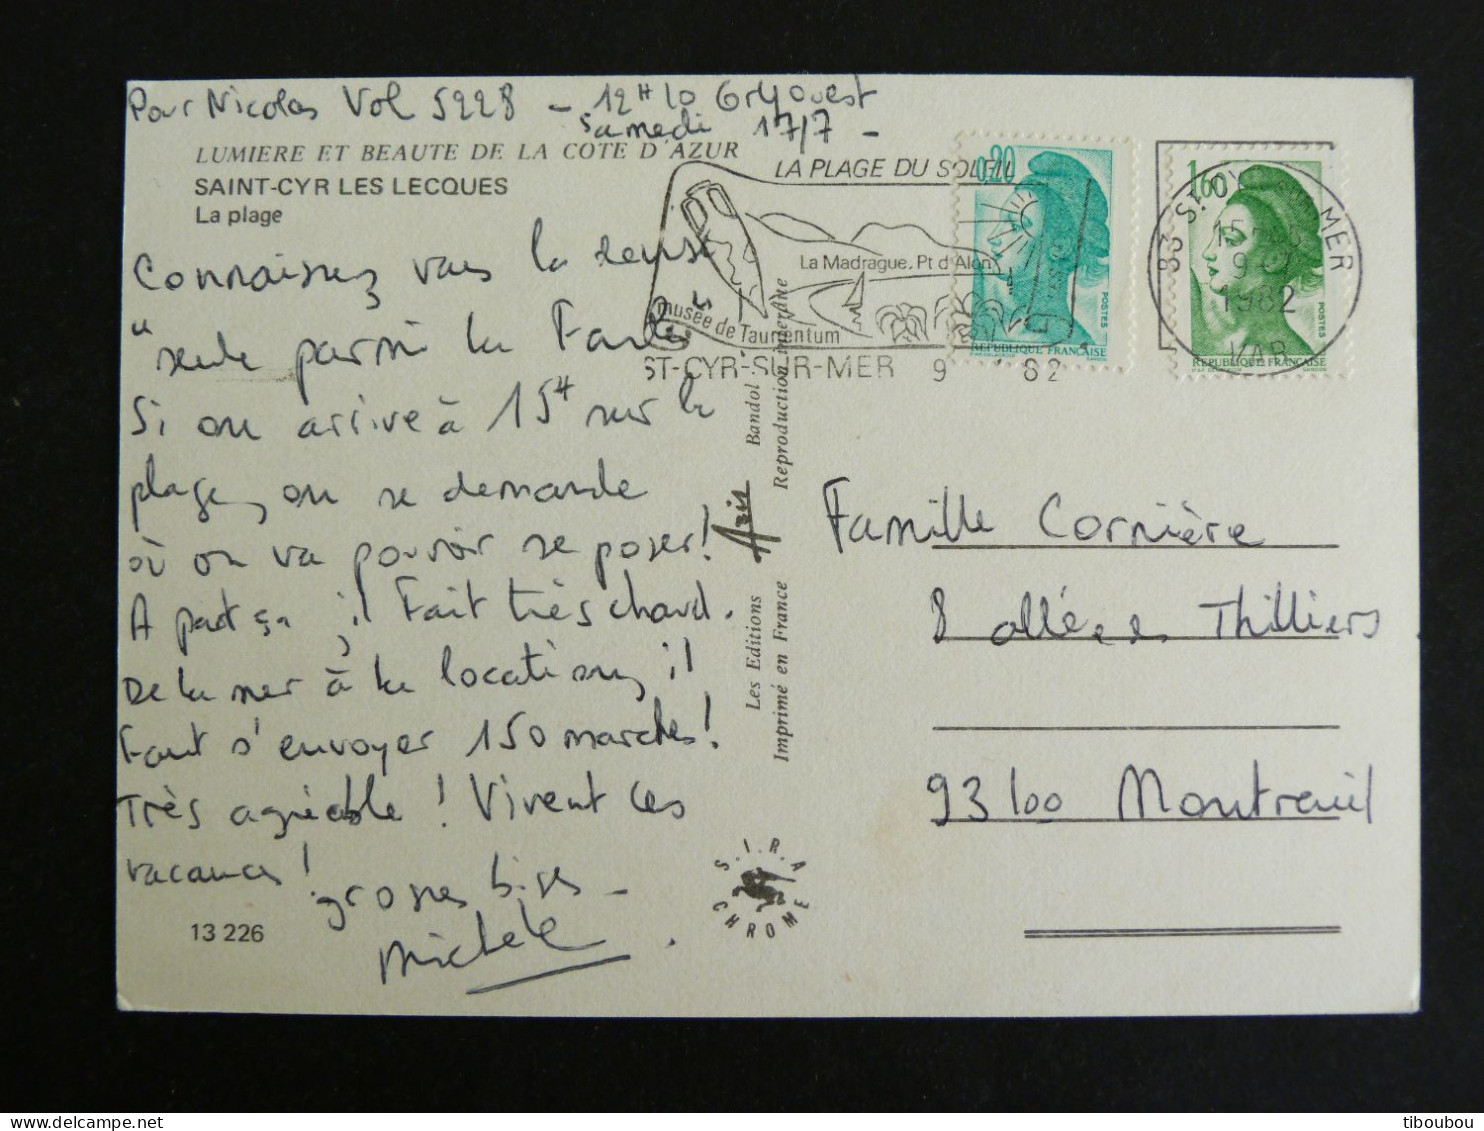 Pour Nicolas Vol 5228 - 12H10 Orly Ouest
Samedi 17/7 -
LUMIERE ET BEAUTE DE LA COTE D'AZUR
SAINT-CYR LES LECQUES
La plage
Connaissez vous la devise
"seule parmi la Foule"
Si on arrive à 15H sur la
plage, on se demande
où on va pouvoir se poser!
A part ça, il Fait très chaud.
De la mer à la location, il
Faut s'envoyer 150 marches!
Très agréable! Vivent les
vacances!
grosses bises -
Michèle.
13 226
LA PLAGE DU SOLEIL
La Madrague. Pt d'Alon
musée de Tauroentum
ST-CYR-SUR-MER 9 82
0,20
POSTES
REPUBLIQUE FRANÇAISE
1,60
POSTES
REPUBLIQUE FRANÇAISE
83 ST-CYR SUR MER
9 -7
1982
VAR
Les Editions Azis Bandol
Imprimé en France Reproduction interdite
S.I.R.A
CHROME
Famille Cornière
8 allée Thilliers
93100 Montreuil
tiboubou